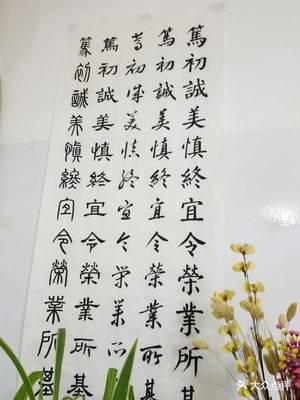 篤初誠美慎終宜令榮業所基
篤初誠美慎終宜令榮業所基
篤初誠美慎終宜令榮業所
篤初誠美慎終宜令榮業所基
篤初誠美慎終宜令榮業所基
大众点评